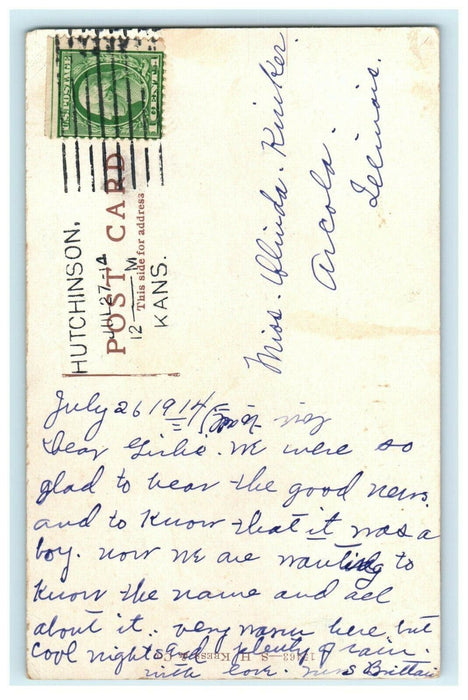 U.S. POSTAGE
1 CENT 1
HUTCHINSON,
JUL 27-14
12-M
KANS.
POST CARD
This side for address
Miss. Clinda. Kuiker.
Arcola.
Illinois.
July 26 1914
Dear Girlie. We were so
glad to hear the good news.
and to know that it was a
boy. now we are wanting to
know the name and all
about it.. very warm here but
cool nights and plenty of rain.
S. H. KRESS &
with love. Mrs Brittain